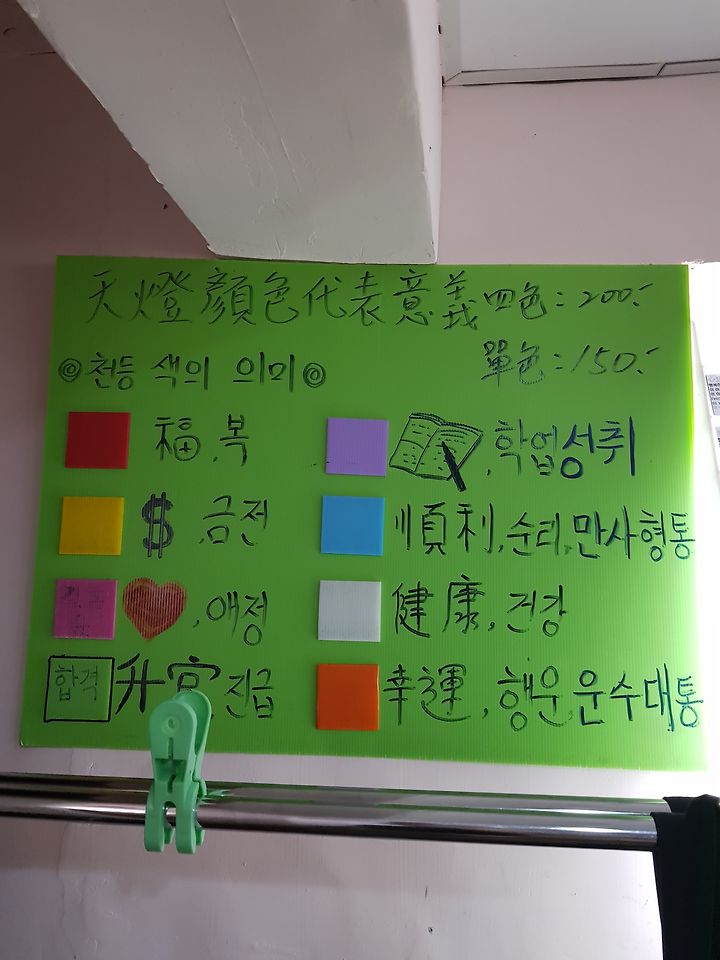 天燈顏色代表意義 四色:200.-
◎천등 색의 의미◎ 單色:150.-
福, 복
, 학업성취
$, 금전
順利, 순리, 만사형통
, 애정
健康, 건강
합격 升官 진급
幸運, 행운, 운수대통